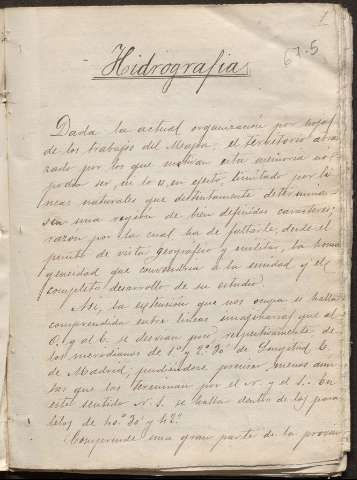 1
67-5
Hidrografia
Dada la actual organización por hojas
de los trabajos del Mapa, el territorio abra
zado por los que motivan esta memoria no
podia ser, no lo es, en efecto, limitado por lí
neas naturales que distintamente determina
sen una región de bien definidos caracteres;
razón por la cual ha de faltarle, desde el
punto de vista geográfico y militar, la homo
geneidad que convendria á la unidad y al
completo desarrollo de su estudio.
Así, la extensión que nos ocupa se halla
comprendida entre líneas imaginarias que al
O. y al E. se desvian poco respectivamente de
los meridianos de 1º y 2º 30' de Longitud E.
de Madrid, pudiéndose precisar menos aún
las que las terminan por el N. y el S. En
este sentido N. S. se halla dentro de los para
lelos de 40º 30' y 42º.
Comprende una gran parte de la provin